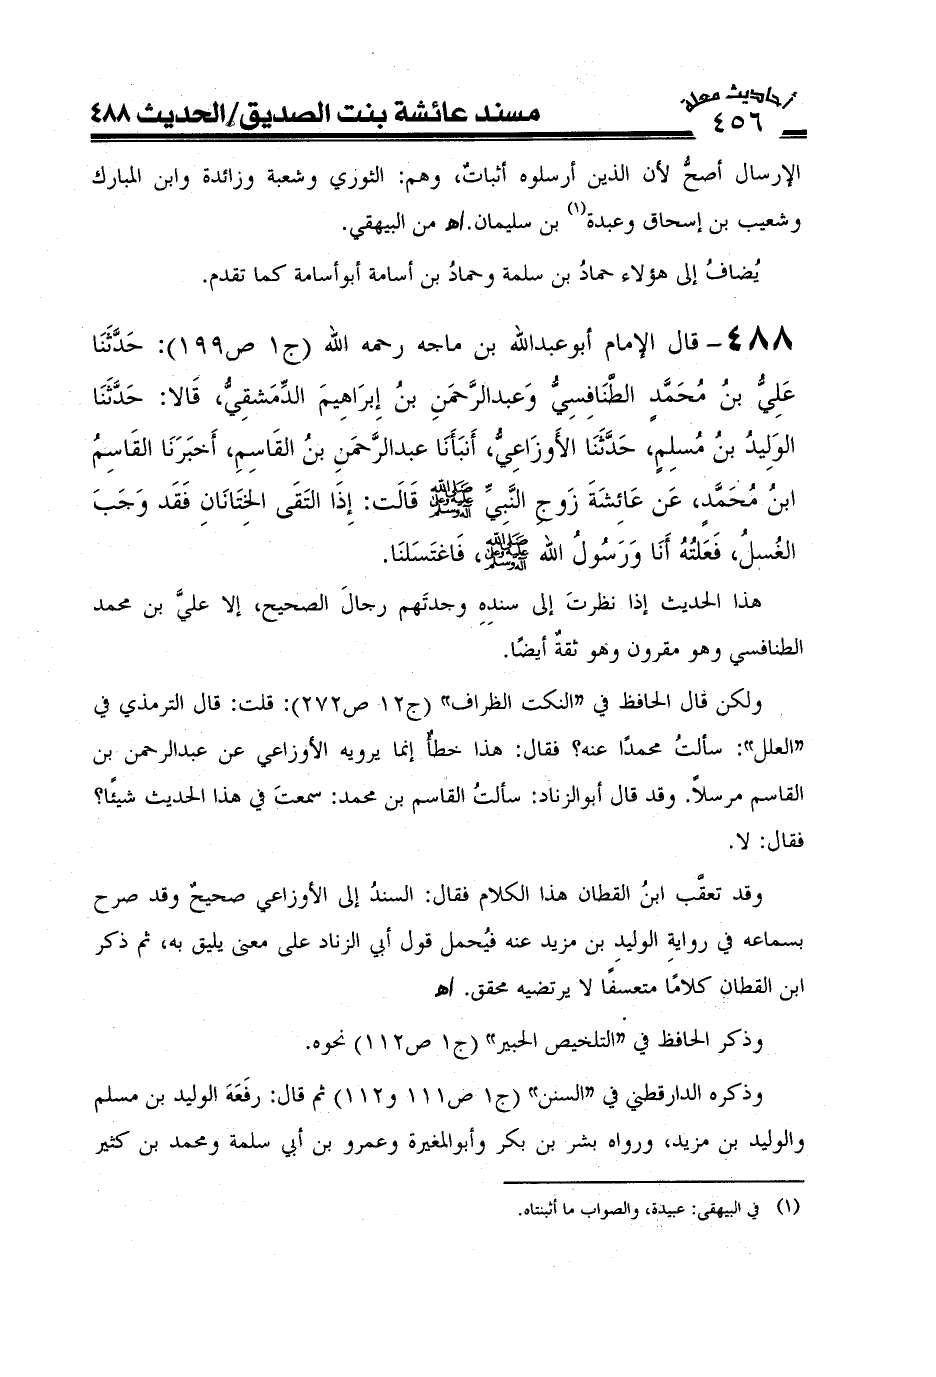 أحاديث معلة
٤٥٦
مسند عائشة بنت الصديق/الحديث ٤٨٨
الإرسال أصحُّ لأن الذين أرسلوه أثباتٌ، وهم: الثوري وشعبة وزائدة وابن المبارك
وشعيب بن إسحاق وعبدة(١) بن سليمان. اهـ من البيهقي.
يُضافُ إلى هؤلاء حمادُ بن سلمة وحمادُ بن أسامة أبوأسامة كما تقدم.
٤٨٨- قال الإمام أبوعبدالله بن ماجه رحمه الله (ج١ ص١٩٩): حَدَّثَنَا
عَلِيُّ بنُ مُحَمَّدٍ الطَّنَافِسِيُّ وَعَبدالرَّحمَنِ بنُ إِبرَاهِيمَ الدِّمَشقِيُّ، قَالا: حَدَّثَنَا
الوَلِيدُ بنُ مُسلِمٍ، حَدَّثَنَا الأَوزَاعِيُّ، أَنبَأَنَا عبدالرَّحمَنِ بنُ القَاسِمِ، أَخبَرَنَا القَاسِمُ
ابنُ مُحَمَّدٍ، عَن عَائِشَةَ زَوجِ النَّبِيِّ ﷺ قَالَت: إِذَا التَقَى الخِتَانَانِ فَقَد وَجَبَ
الغُسلُ، فَعَلتُهُ أَنَا وَرَسُولُ الله ﷺ، فَاغتَسَلنَا.
هذا الحديث إذا نظرتَ إلى سندِهِ وجدتَهم رجالَ الصحيح، إلا عليَّ بن محمد
الطنافسي وهو مقرون وهو ثقةٌ أيضًا.
ولكن قال الحافظ في «النكت الظراف» (ج١٢ ص٢٧٢): قلت: قال الترمذي في
«العلل»: سألتُ محمدًا عنه؟ فقال: هذا خطأٌ إنما يرويه الأوزاعي عن عبدالرحمن بن
القاسم مرسلاً. وقد قال أبوالزناد: سألتُ القاسم بن محمد: سمعتَ في هذا الحديث شيئًا؟
فقال: لا.
وقد تعقَّب ابنُ القطان هذا الكلام فقال: السندُ إلى الأوزاعي صحيحٌ وقد صرح
بسماعه في روايةِ الوليدِ بن مزيد عنه فيُحمل قول أبي الزناد على معنى يليق به، ثم ذكر
ابن القطان كلامًا متعسفًا لا يرتضيه محقق. اهـ
وذكر الحافظ في «التلخيص الحبير» (ج١ ص١١٢) نحوه.
وذكره الدارقطني في «السنن» (ج١ ص١١١ و١١٢) ثم قال: رفَعَهَ الوليد بن مسلم
والوليد بن مزيد، ورواه بشر بن بكر وأبوالمغيرة وعمرو بن أبي سلمة ومحمد بن كثير
(١) في البيهقي: عبيدة، والصواب ما أثبتناه.